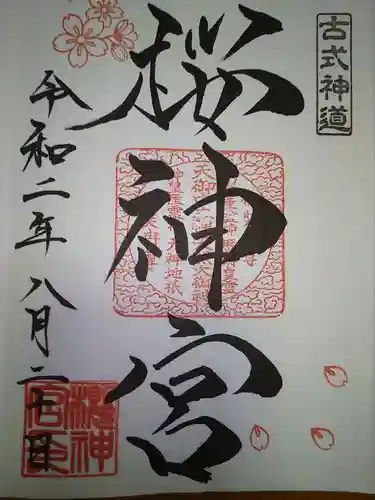 古式神道
桜神宮
令和二年八月二十日
櫻神
宮印